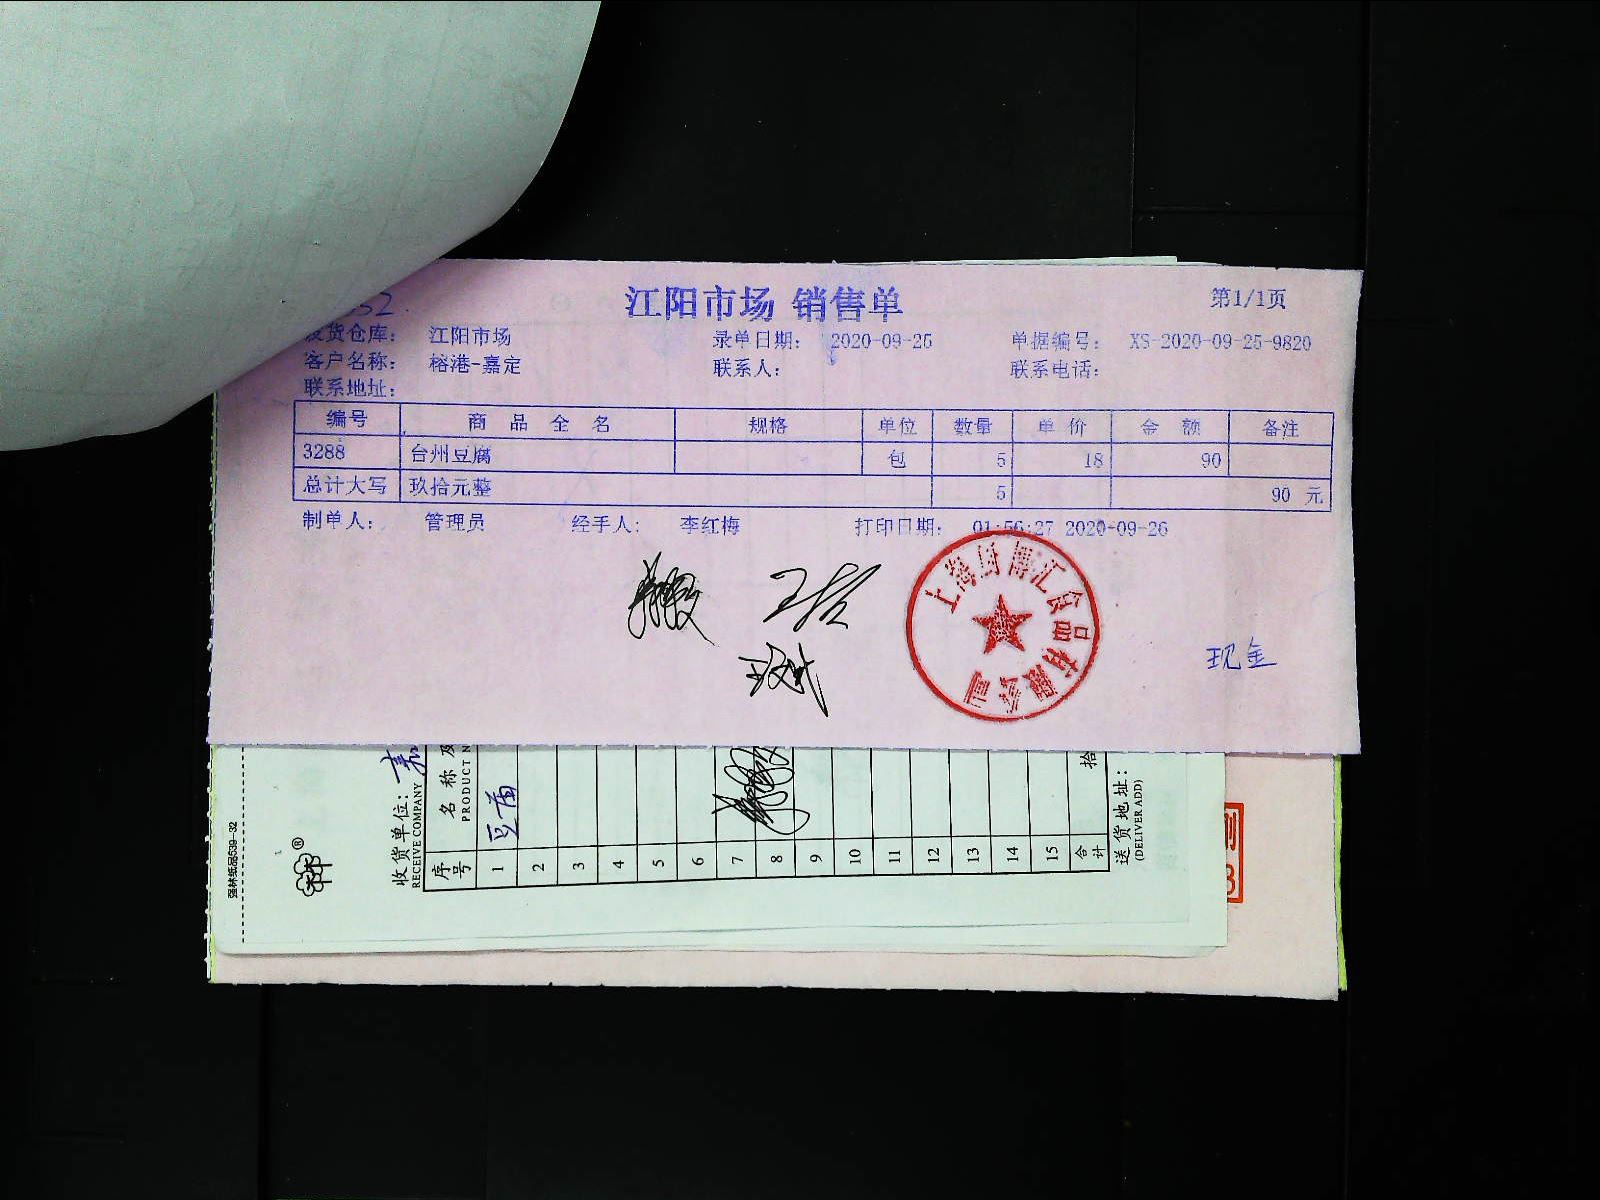 32.
江阳市场 销售单
第1/1页
发货仓库: 江阳市场 录单日期: 2020-09-25 单据编号: XS-2020-09-25-9820
客户名称: 榕港-嘉定 联系人: 联系电话:
联系地址:
编号 商品全名 规格 单位 数量 单价 金额 备注
3288 台州豆腐 包 5 18 90
总计大写 玖拾元整 5 90 元
制单人: 管理员 经手人: 李红梅 打印日期: 01:56:27 2020-09-26
上海厨博汇食品有限公司
现金
强林纸品539-32
收货单位: 嘉
RECEIVE COMPANY
序号 名称及
PRODUCT N
1 豆苗
2
3
4
5
6
7
8
9
10
11
12
13
14
15
合计 拾
送货地址:
(DELIVER ADD)